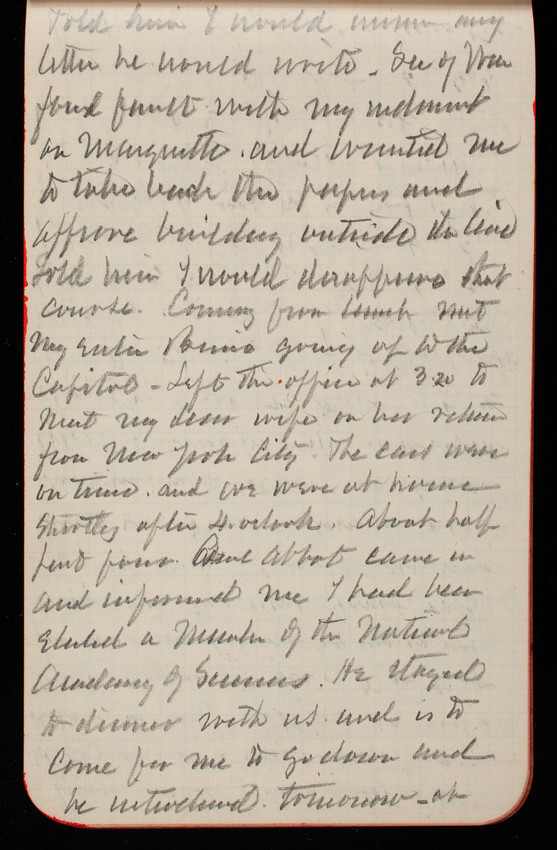 Told him I would answer any
letter he would write - Sec of War
found fault with my indorsement
on Marquette. and wanted me
to take back the papers and
approve building outside the line
Told him I would disapprove that
course. Coming from lunch met
My going up to the
Capitol - Left the office at 3 20 to
meet my dear wife on her return
from New York City. The cars were
on time. and we were at home
shortly after 4. o clock. About half
past four Abbot came in
and informed me I had been
Elected a Member of the National
Academy of Sciences. He stayed
to dinner with us. and is to
come for me to go down and
be introduced. tomorrow - at